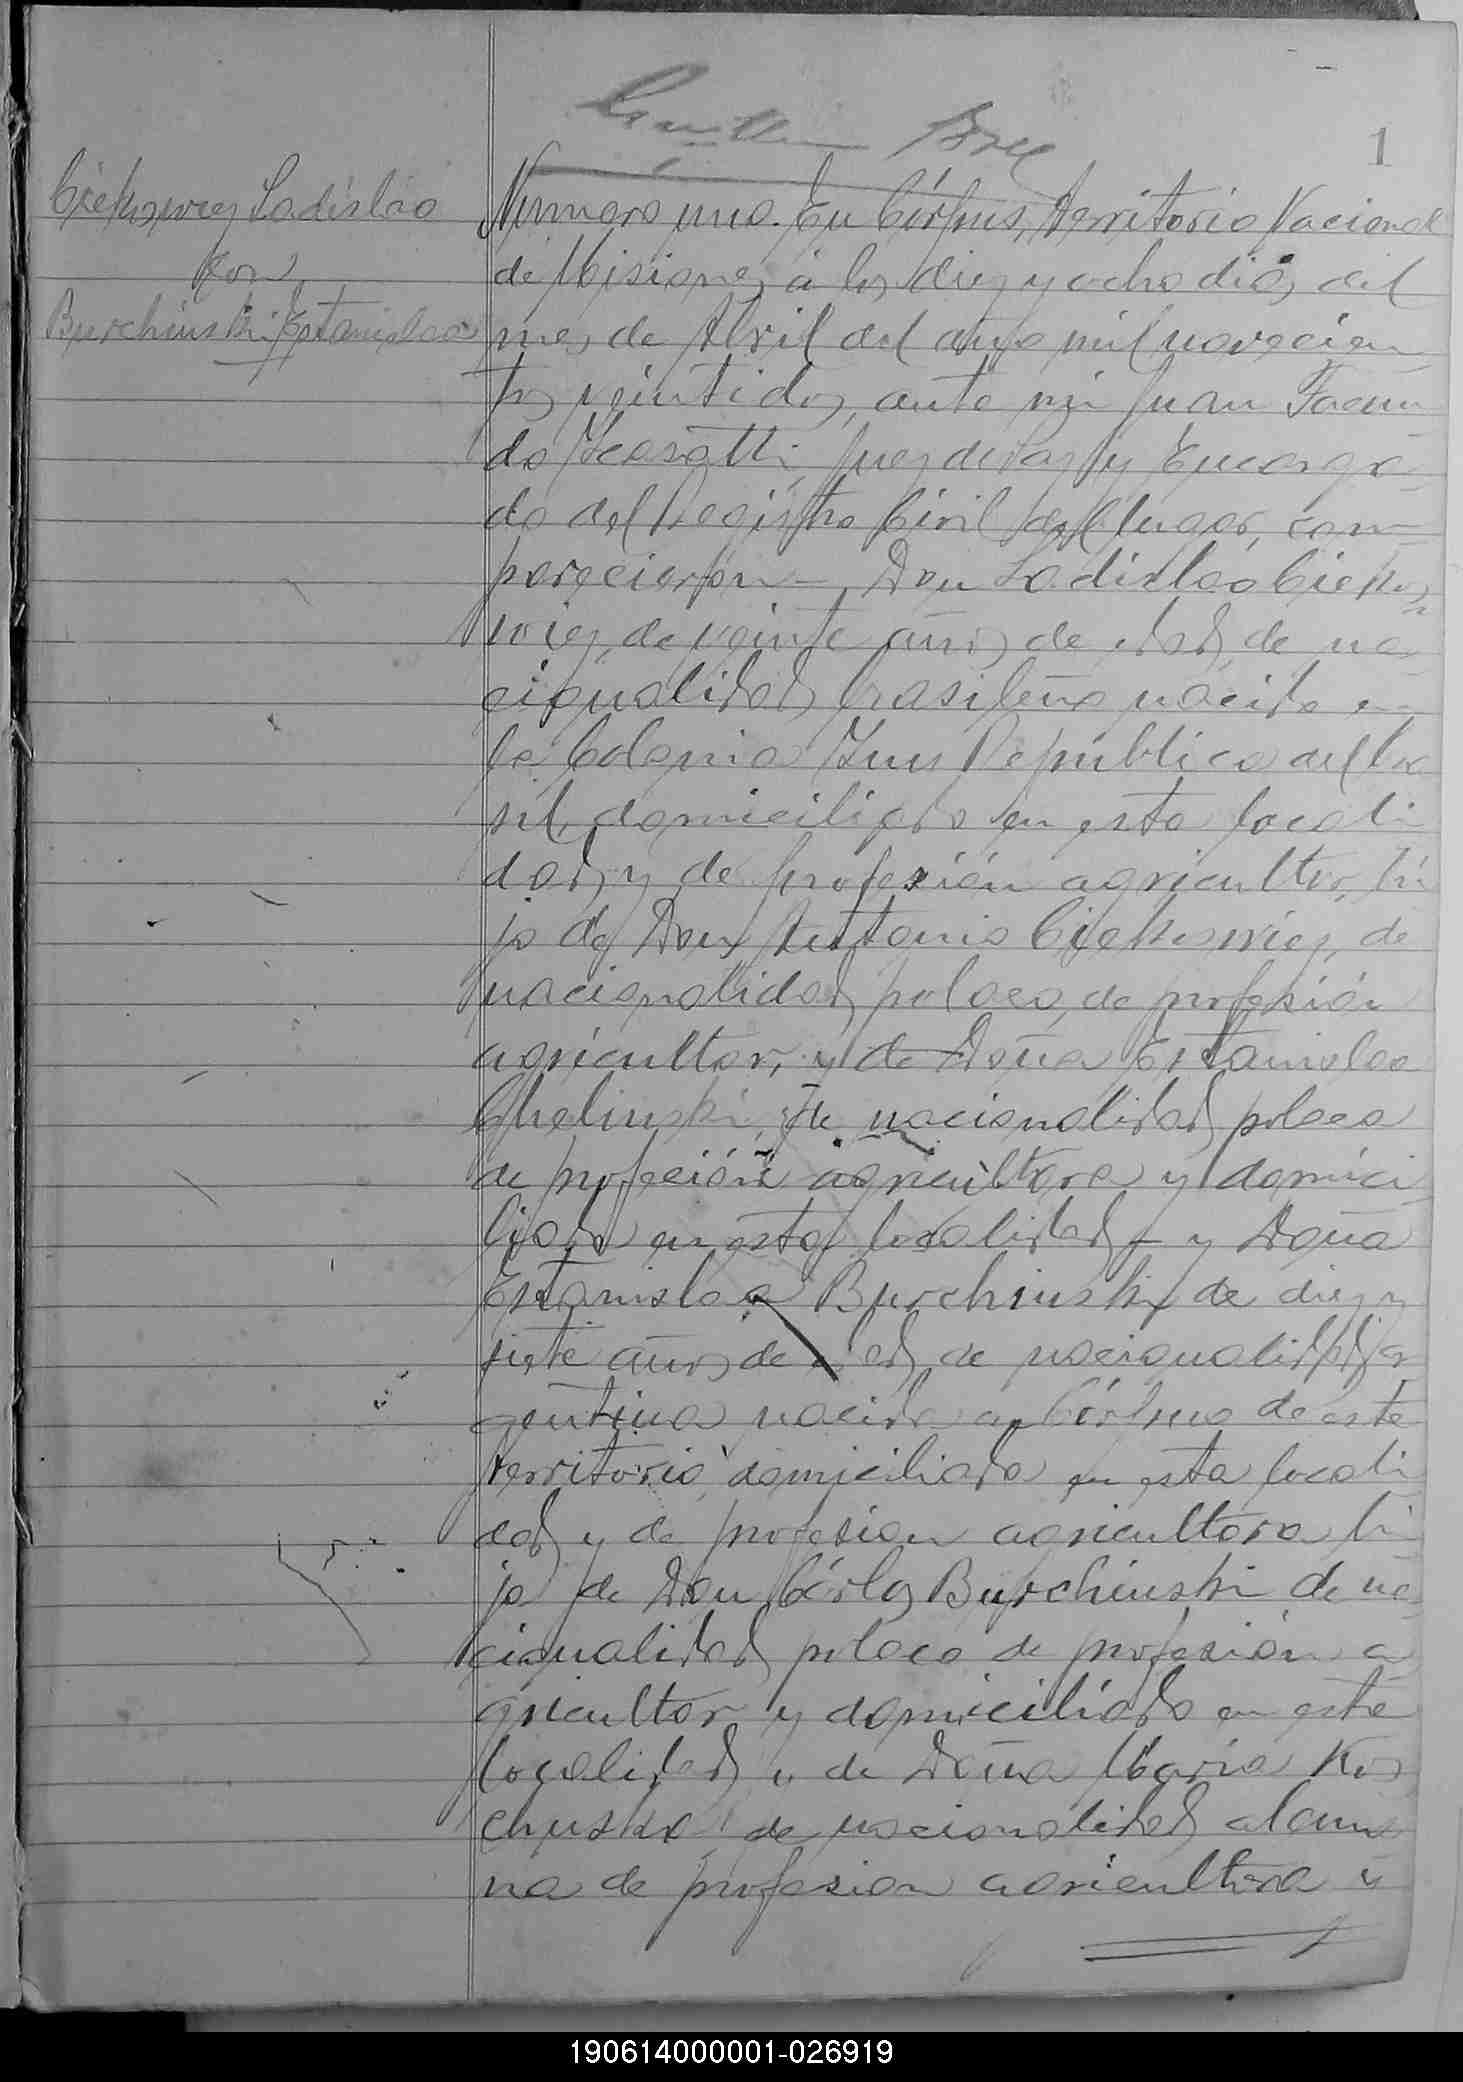 1
Ciekoswiez Ladislao
con
Burchinski Estanislaa
Numero uno. En Córpus, Territorio Nacional
de Misiones á los diez y ocho dias del
mes de Abril del año mil novecien
tos veintidos, ante mi Juan Facun
do juez de Paz y Encarga
do del Registro Civil del lugar, com
parecieron Don Ladislao Ciekos
wiez, de veinte años de edad, de na
cionalidad brasileña nacido en
la Colonia República del Bra
sil, domiciliado en esta locali
dad y de profesión agricultor, hi
jo de Don Antonio Ciekoswiez, de
nacionalidad polaca, de profesión
agricultor, y de Doña Estanislaa
Chelinski, de nacionalidad polaca
de profeción agricultora y domici
liada en esta localidad - y Doña
Estanislaa Burchinski de diez y
siete años de edad, de nacionalidad ar
gentina nacida en Córpus de este
territorio, domiciliada en esta locali
dad y de profesion agricultora hi
ja de Don Cárlos Burchinski de na
cionalidad polaca de profesión a
gricultor y domiciliado en esta
localidad y de Doña Maria Kos
chuska de nacionalidad alema
na de profesion agricultora y
190614000001-026919